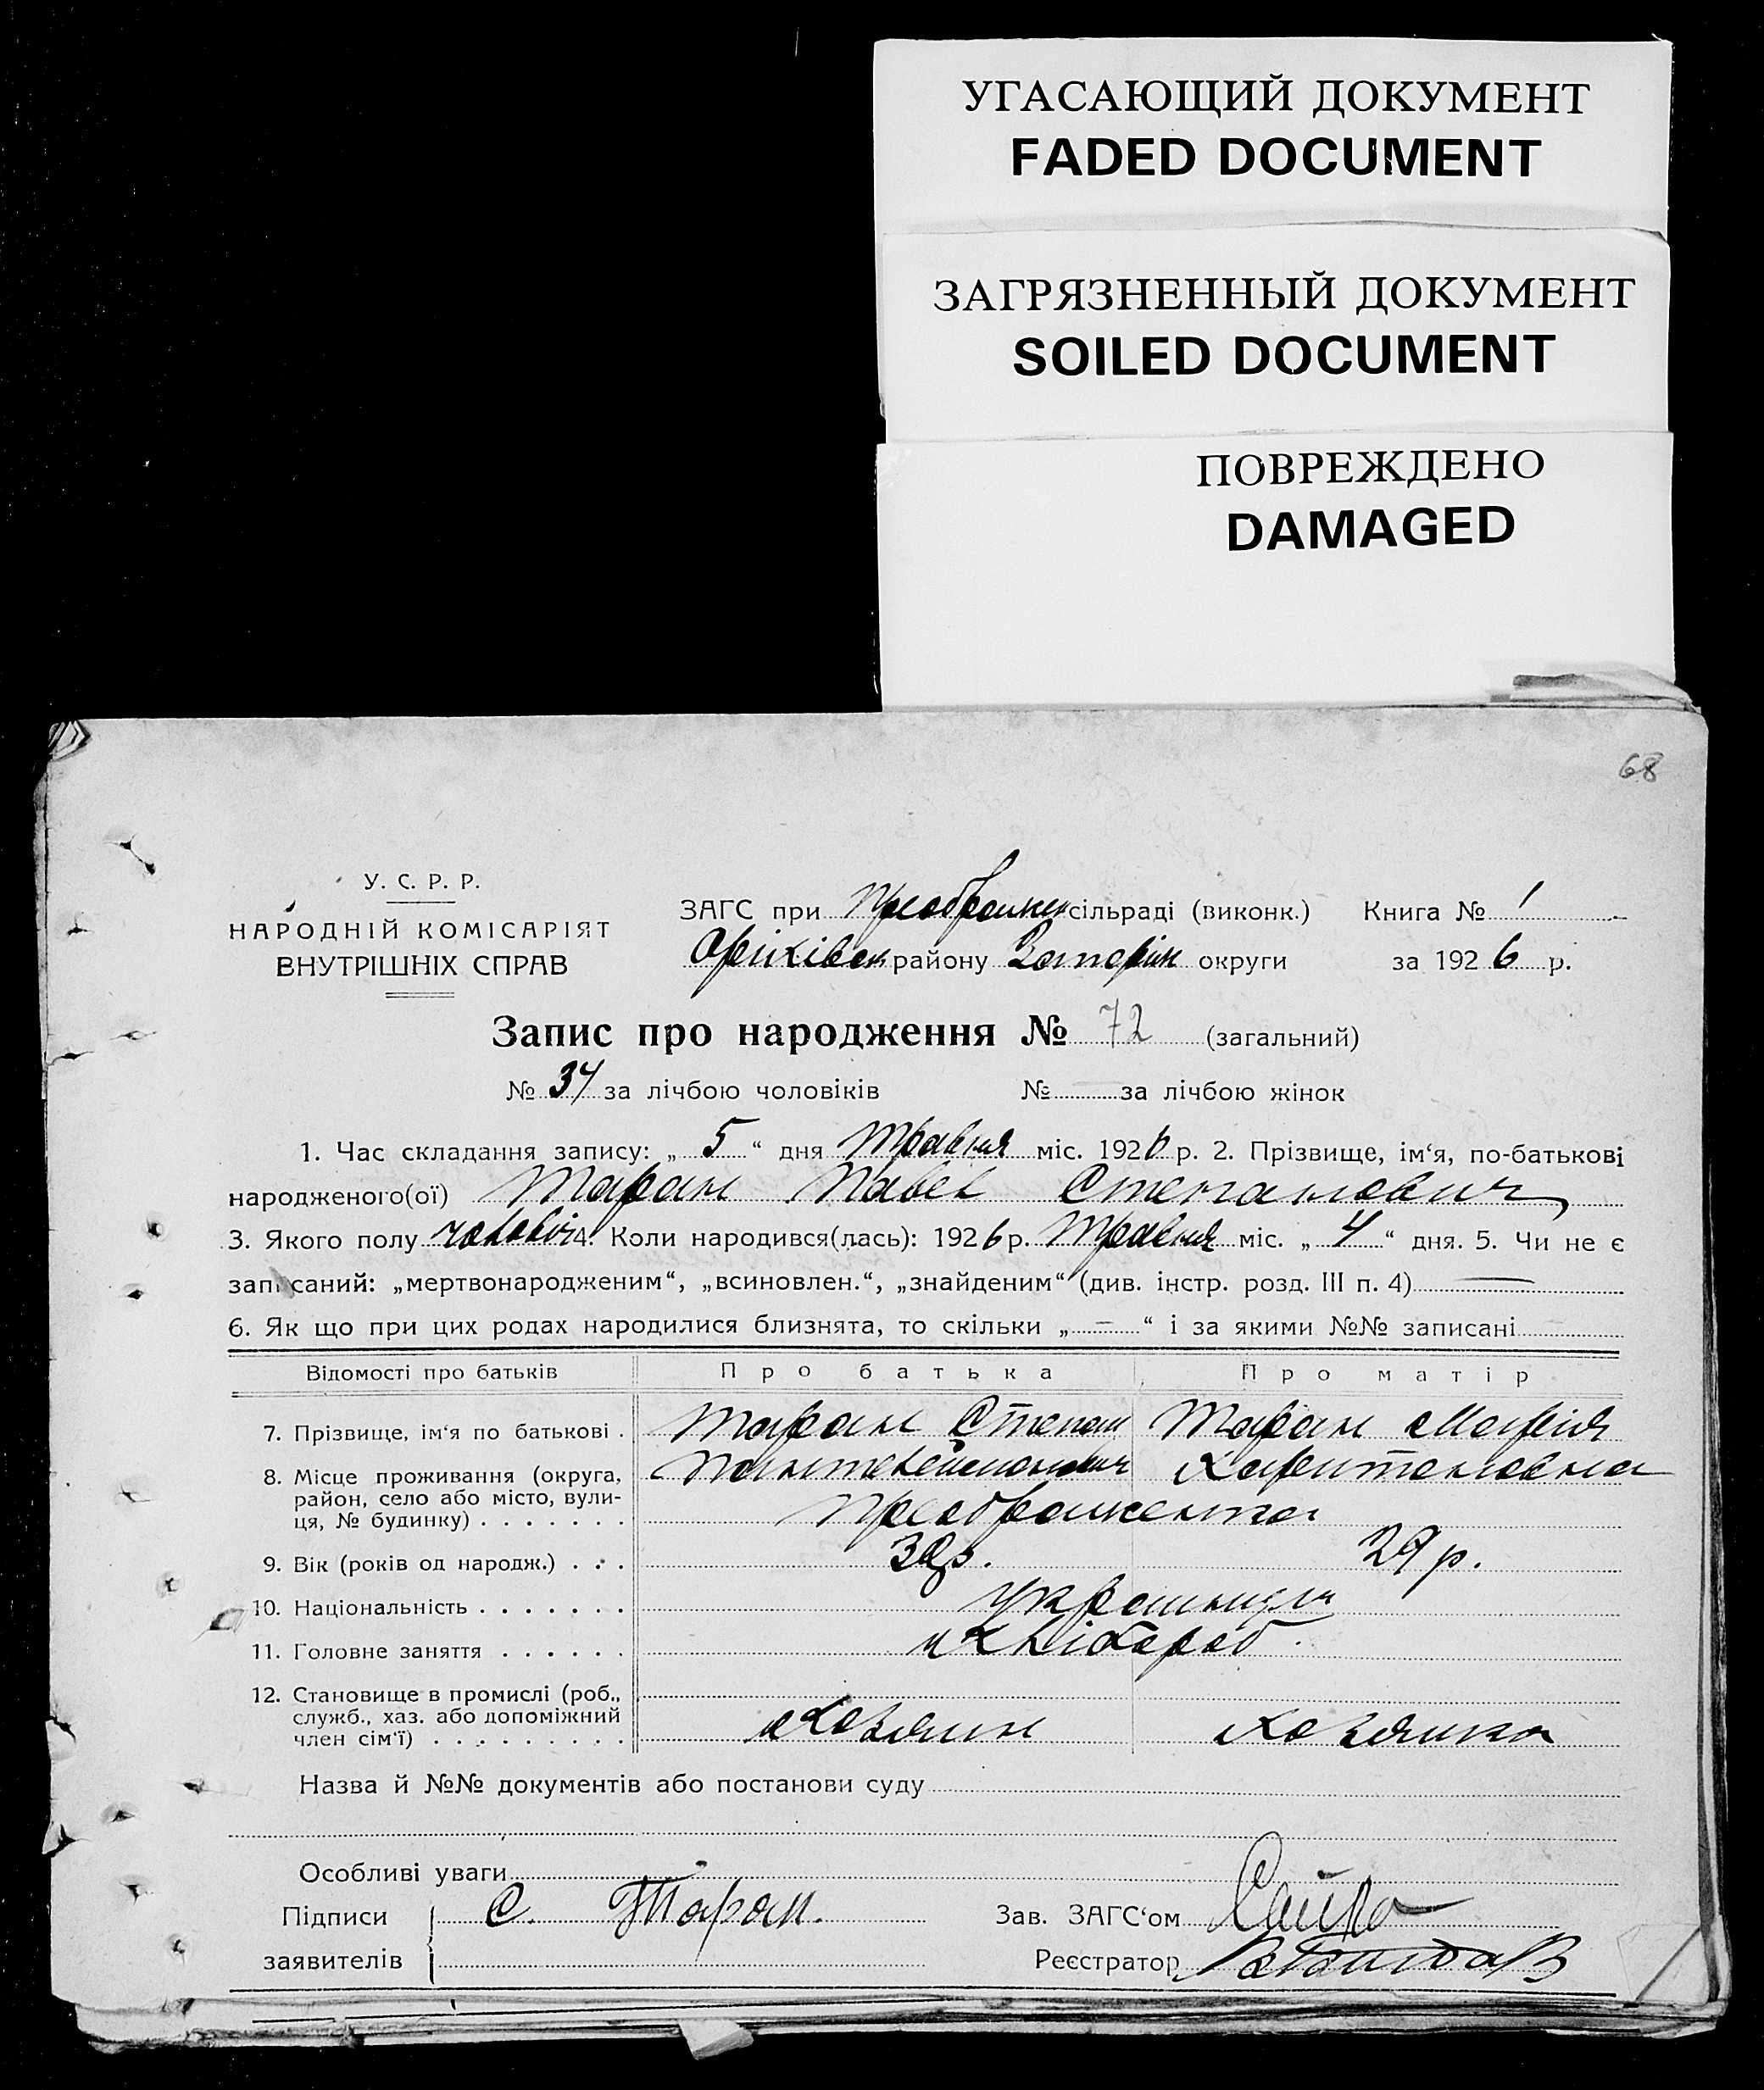 УГАСАЮЩИЙ ДОКУМЕНТ
FADED DOCUMENT
ЗАГРЯЗНЕННЫЙ ДОКУМЕНТ
SOILED DOCUMENT
ПОВРЕЖДЕНО
DAMAGED
68
У. С. Р. Р.
НАРОДНІЙ КОМІСАРІЯТ
ВНУТРІШНІХ СПРАВ
ЗАГС при Преображен сільраді (виконк.) Книга № 1
Оріхівськ району Запоріж округи за 1926 р.
Запис про народження № 72 (загальний)
№ 34 за лічбою чоловіків № — за лічбою жінок
1. Час складання запису: „ 5 “ дня Травня міс. 1926 р. 2. Прізвище, ім‘я, по-батькові
народженого(ої) Таран Павел Степанович
3. Якого полу чоловіч 4. Коли народився(лась): 1926 р. Травня міс. „ 4 “ дня. 5. Чи не є
записаний: „мертвонародженим“, „всиновлен.“, „знайденим“ (див. інстр. розд. III п. 4) —
6. Як що при цих родах народилися близнята, то скільки „ — “ і за якими №№ записані
Відомості про батьків Про батька Про матір
7. Прізвище, ім‘я по батькові . Таран Степан Таран Марія
Пантелеймонович Харитоновна
8. Місце проживання (округа,
район, село або місто, вули-
ця, № будинку) . . . . . . . Преображенка
9. Вік (років од народж.) . . . 29 р.
10. Національність . . . . . . .
11. Головне заняття . . . . . . хлібороб
12. Становище в промислі (роб.,
служб., хаз. або допоміжний
член сім‘ї) . . . . . . . . . Хозяин Хозяйка
Назва й №№ документів або постанови суду
Особливі уваги
Підписи
заявителів
С. Таран.
Зав. ЗАГС‘ом
Реєстратор